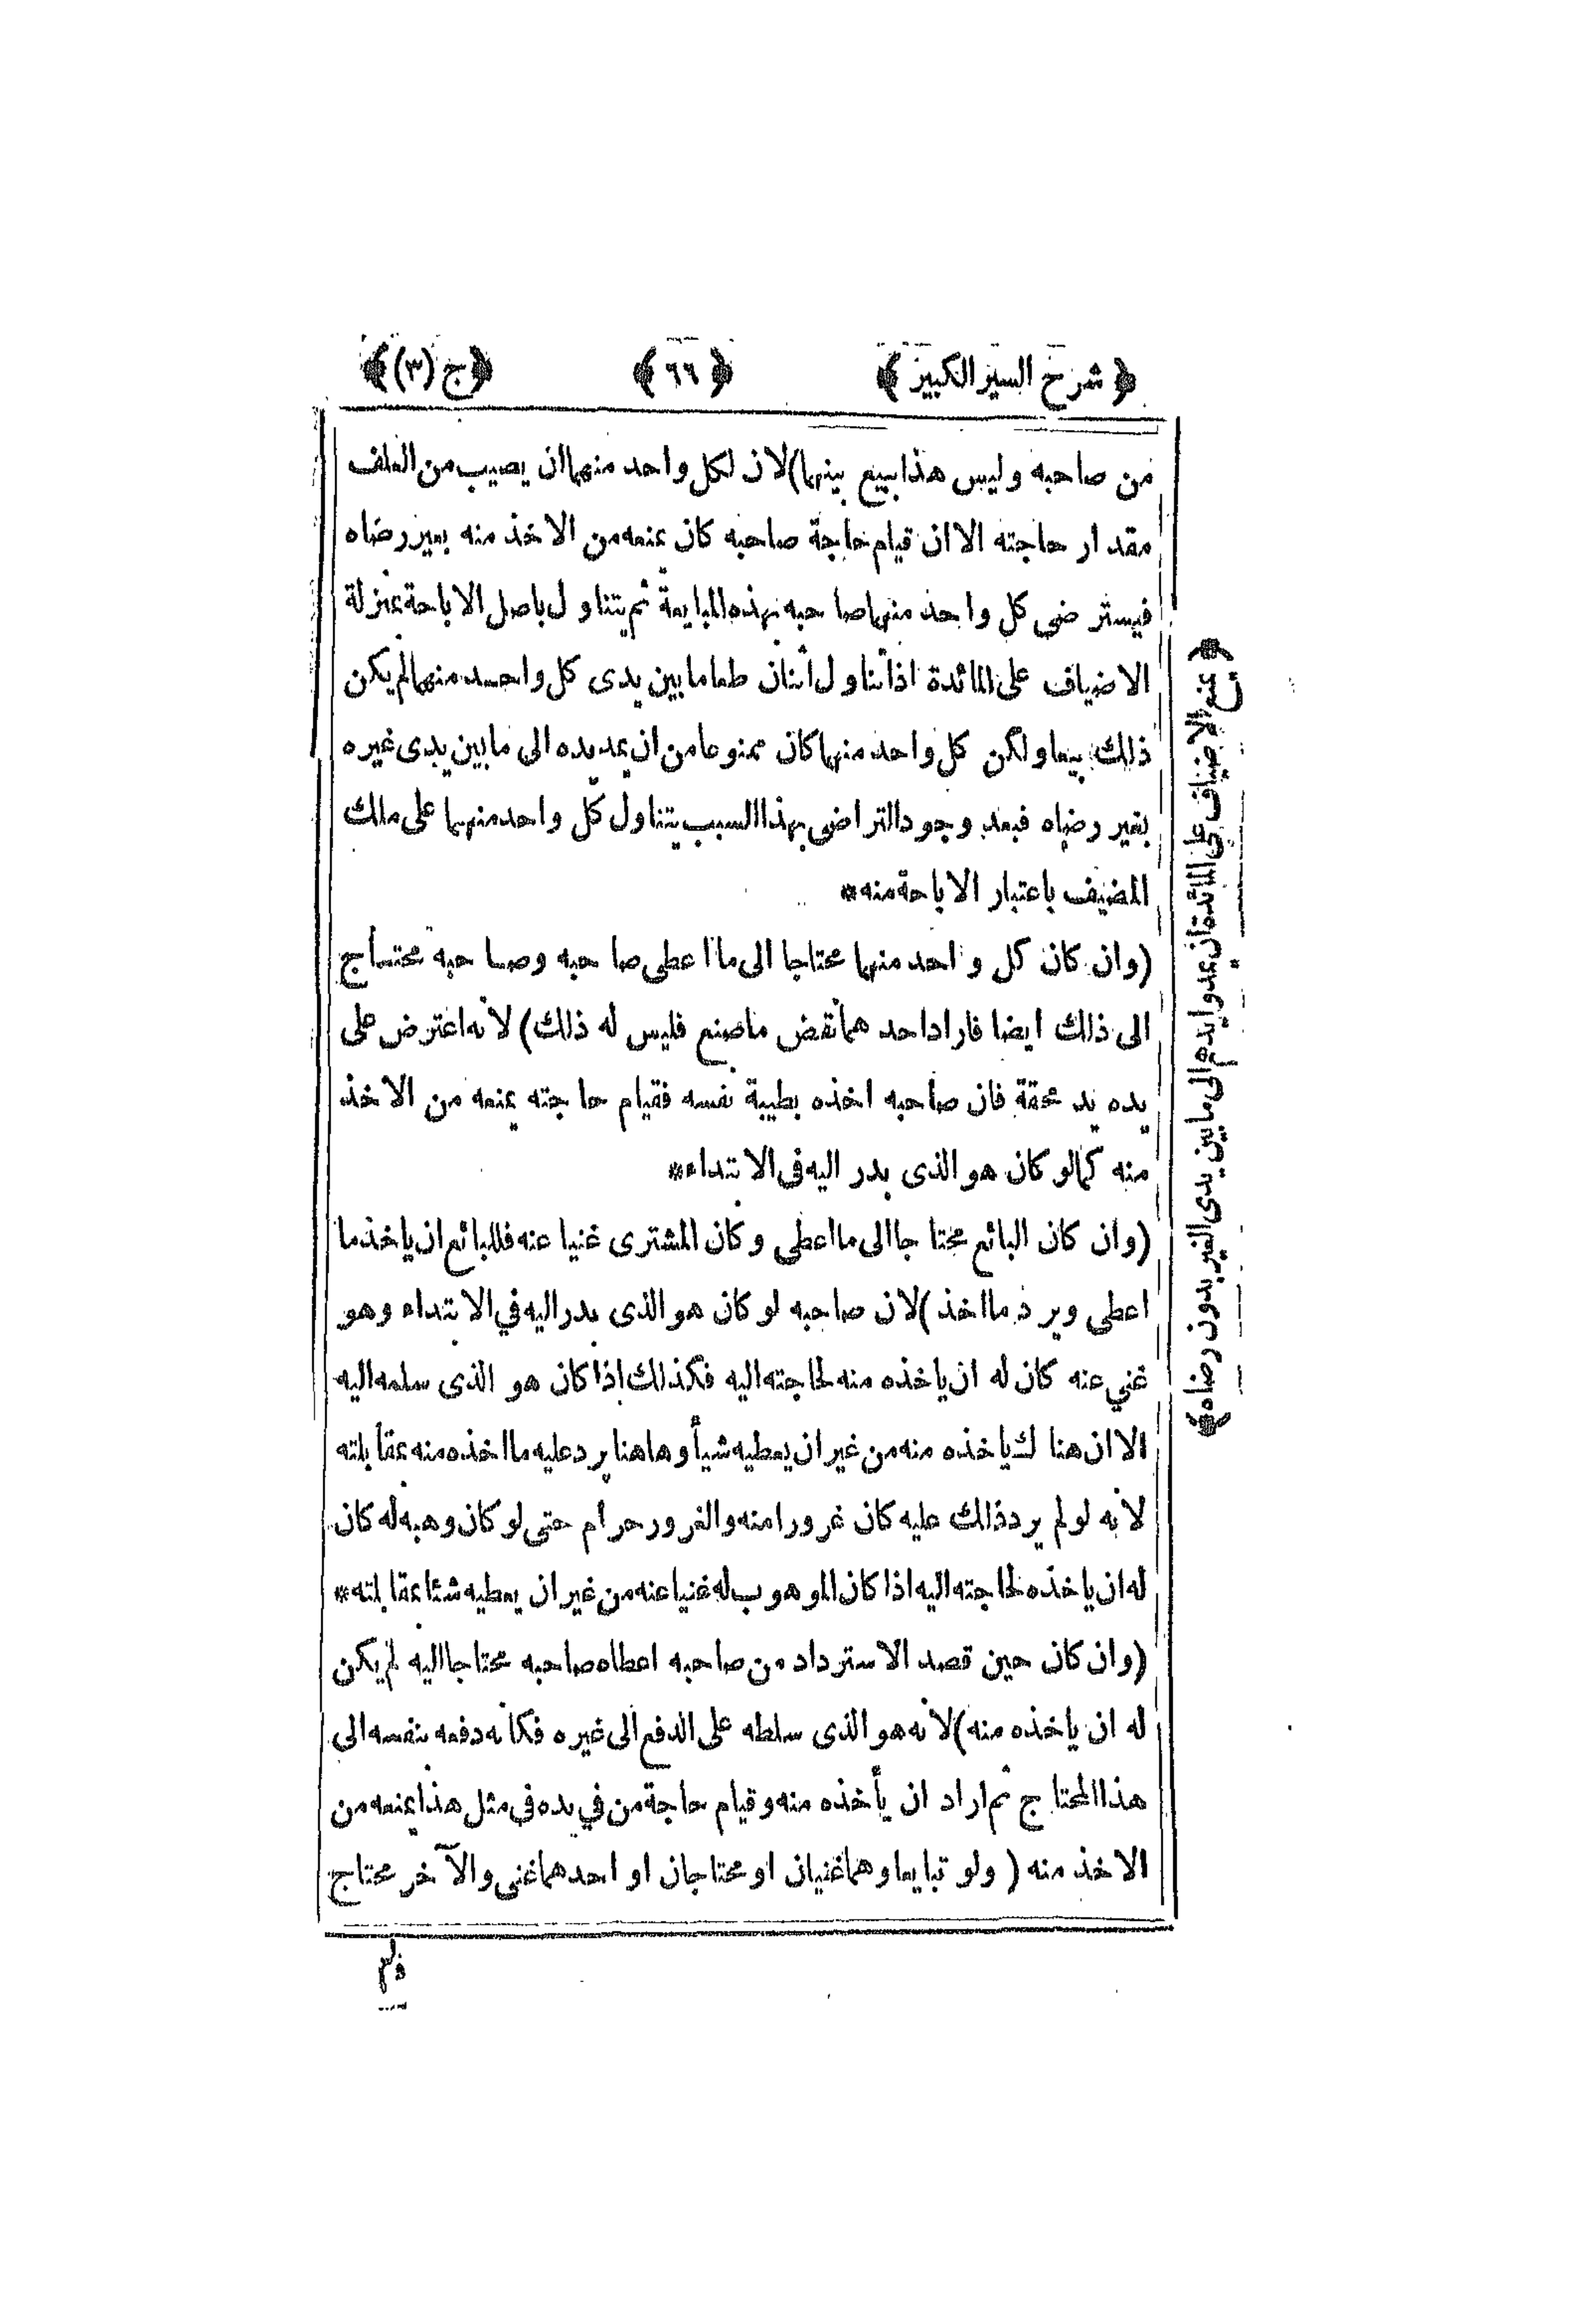 ﴿ شرح السير الكبير ﴾ ﴿ ٦٦ ﴾ ﴿ ج (٣) ﴾
من صاحبه وليس هذا ببيع بينهما) لان لكل واحد منهما ان يصيب من العلف
مقدار حاجته الا ان قيام حاجة صاحبه كان يمنعه من الاخذ منه بغير رضاه
فيسترضى كل واحد منهما صاحبه بهذه المبايعة ثم يتناول باصل الاباحة بمنزلة
الاضياف على المائدة اذا تناول اثنان طعاما بين يدى كل واحد منهما لم يكن
ذلك بيعا ولكن كل واحد منهما كان ممنوعا من ان يمد يده الى ما بين يدى غيره
بغير رضاه فبعد وجود التراضى بهذا السبب يتناول كل واحد منهما على ملك
المضيف باعتبار الاباحة منه *
(وان كان كل واحد منهما محتاجا الى ما اعطى صاحبه وصاحبه محتاج
الى ذلك ايضا فاراد احدهما نقض ما صنع فليس له ذلك) لانه اعترض على
يده يد محقة فان صاحبه اخذه بطيبة نفسه فقيام حاجته يمنعه من الاخذ
منه كما لو كان هو الذى بدر اليه فى الابتداء *
(وان كان البائع محتاجا الى ما اعطى وكان المشترى غنيا عنه فللبائع ان ياخذ ما
اعطى ويرد ما اخذ) لان صاحبه لو كان هو الذى بدر اليه في الابتداء وهو
غني عنه كان له ان ياخذه منه لحاجته اليه فكذلك اذا كان هو الذى سلمه اليه
الا ان هنا لك ياخذه منه من غير ان يعطيه شيأ وهاهنا يرد عليه ما اخذه منه بمقابلته
لانه لو لم يرد ذلك عليه كان غرورا منه والغرور حرام حتى لو كان وهبه له كان
له ان ياخذه لحاجته اليه اذا كان الموهوب له غنيا عنه من غير ان يعطيه شئا بمقابلته *
(وان كان حين قصد الاسترداد من صاحبه اعطاه صاحبه محتاجا اليه لم يكن
له ان ياخذه منه) لانه هو الذى سلطه على الدفع الى غيره فكانه دفعه بنفسه الى
هذا المحتاج ثم اراد ان يأخذه منه وقيام حاجة من في يده فى مثل هذا يمنعه من
الاخذ منه ( ولو تبايعا وهما غنيان او محتاجان او احدهما غنى والآخر محتاج
﴿ يمنع الاضياف على المائدة ان يمدوا ايديهم الى ما بين يدى الغير بدون رضاه ﴾